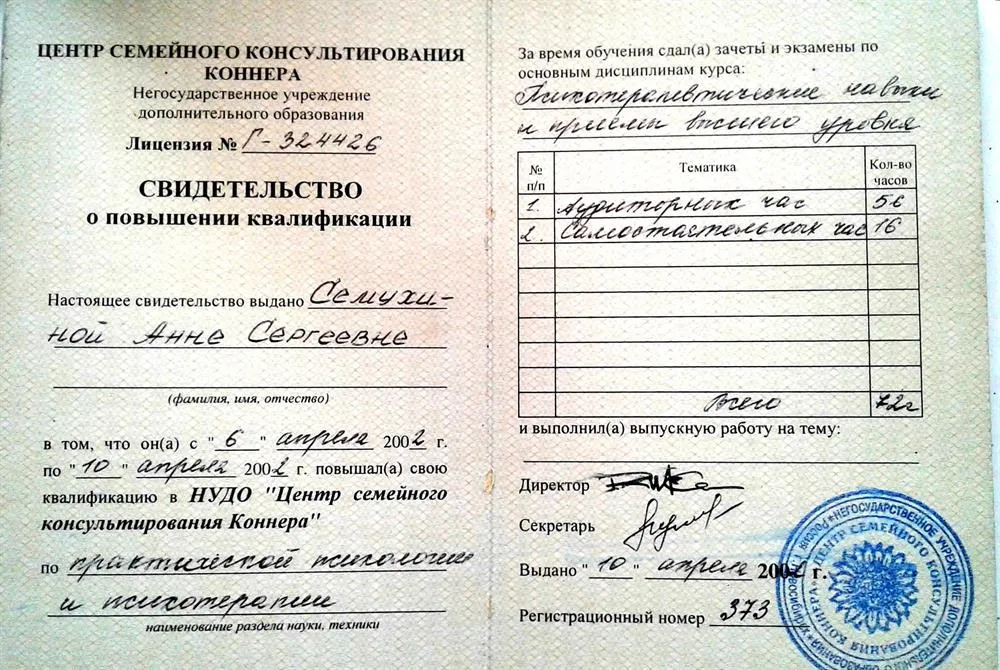 ЦЕНТР СЕМЕЙНОГО КОНСУЛЬТИРОВАНИЯ
КОННЕРА
Негосударственное учреждение
дополнительного образования
Лицензия № Г-324426
СВИДЕТЕЛЬСТВО
о повышении квалификации
Настоящее свидетельство выдано Семухи-
ной Анне Сергеевне
(фамилия, имя, отчество)
в том, что он(а) с "6" апреля 2002 г.
по "10" апреля 2002 г. повышал(а) свою
квалификацию в НУДО "Центр семейного
консультирования Коннера"
по практической психологии
и психотерапии
наименование раздела науки, техники
За время обучения сдал(а) зачеты и экзамены по
основным дисциплинам курса:
Психотерапевтические навыки
и приемы высшего уровня
№ п/п Тематика Кол-во часов
1. Аудиторных час 56
2. Самостоятельных час 16
Всего 72г
и выполнил(а) выпускную работу на тему:
Директор
Секретарь
Выдано "10" апреля 2002 г.
Регистрационный номер 373
НЕГОСУДАРСТВЕННОЕ УЧРЕЖДЕНИЕ ДОПОЛНИТЕЛЬНОГО ОБРАЗОВАНИЯ
ЦЕНТР СЕМЕЙНОГО КОНСУЛЬТИРОВАНИЯ КОННЕРА